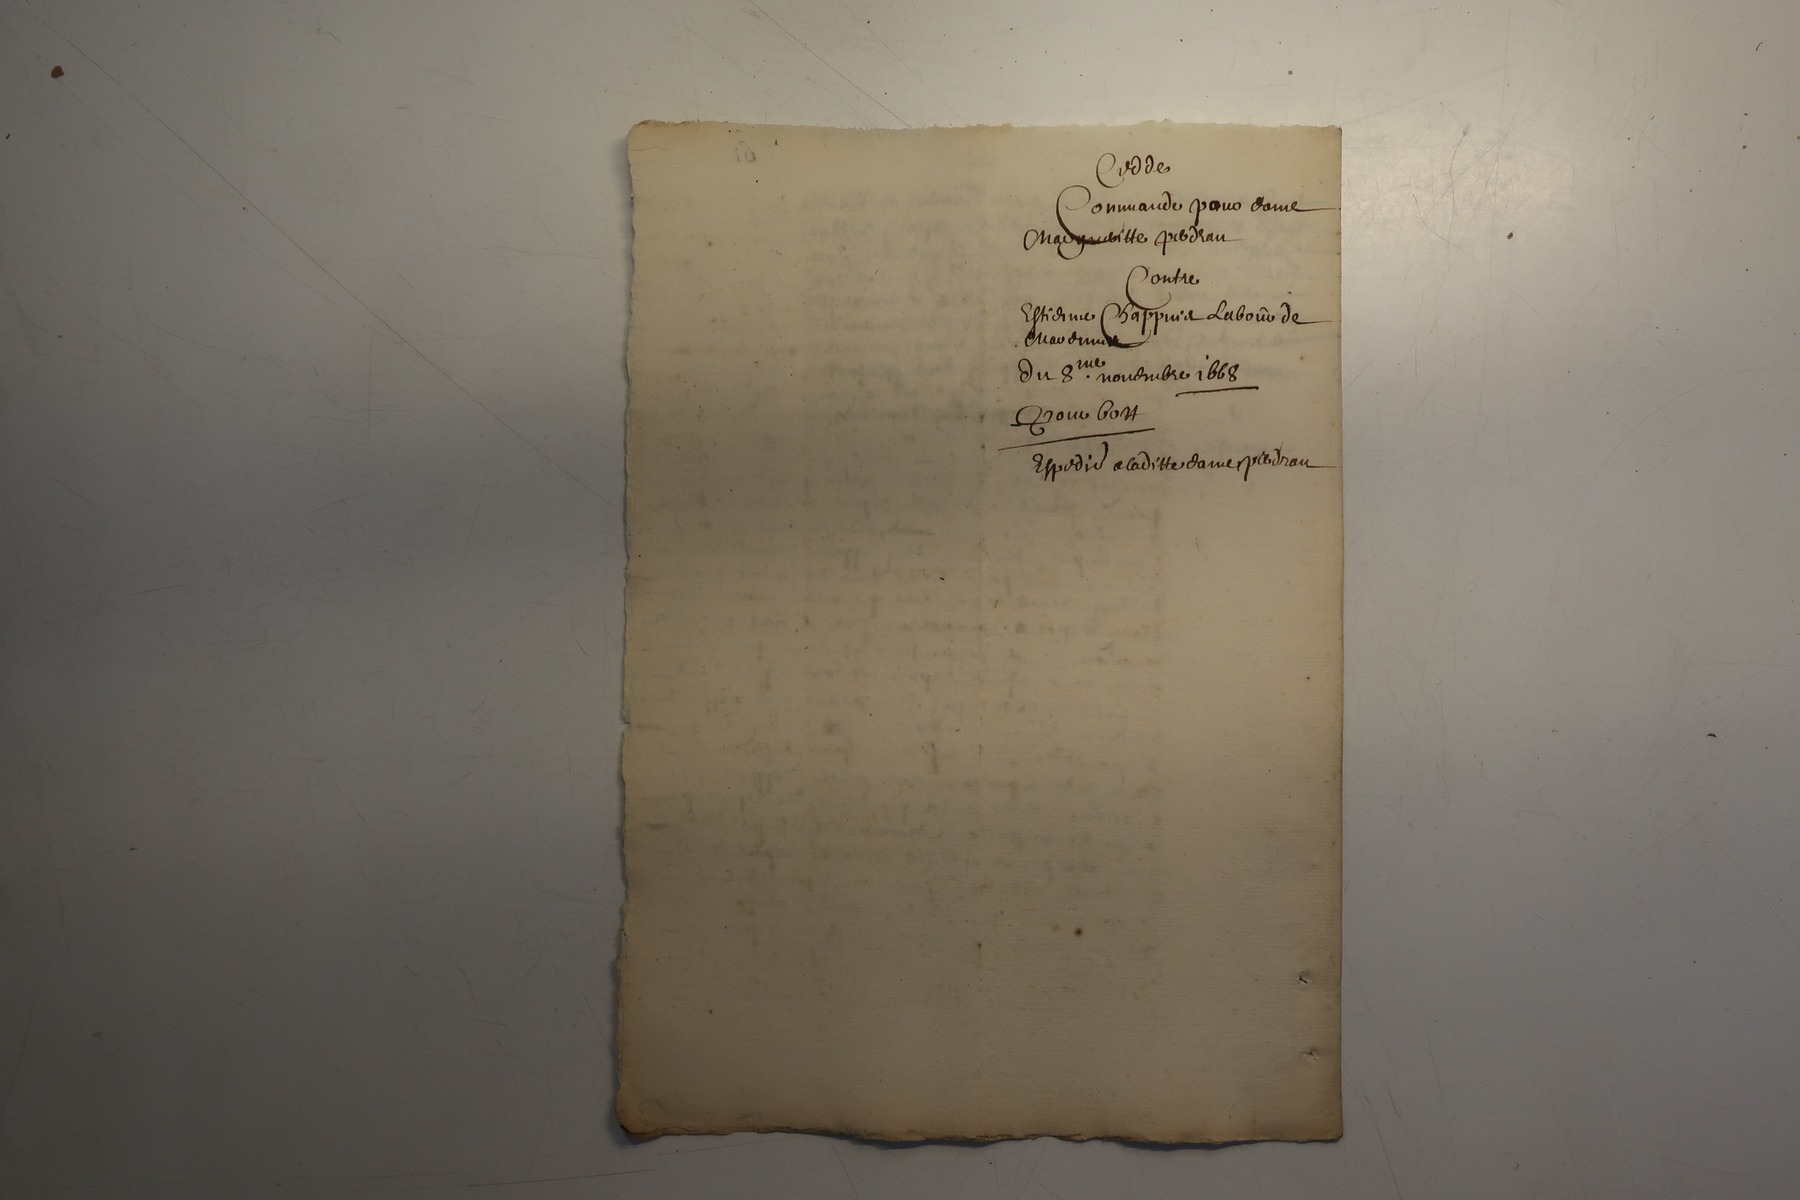 Cedde
Commande pour dame
Margueritte piedrau
Contre
Estienne Chappuis Labour de
Mardenne
du 8.me novembre 1668
Pour bost
Espedié a la ditte dame piedrau